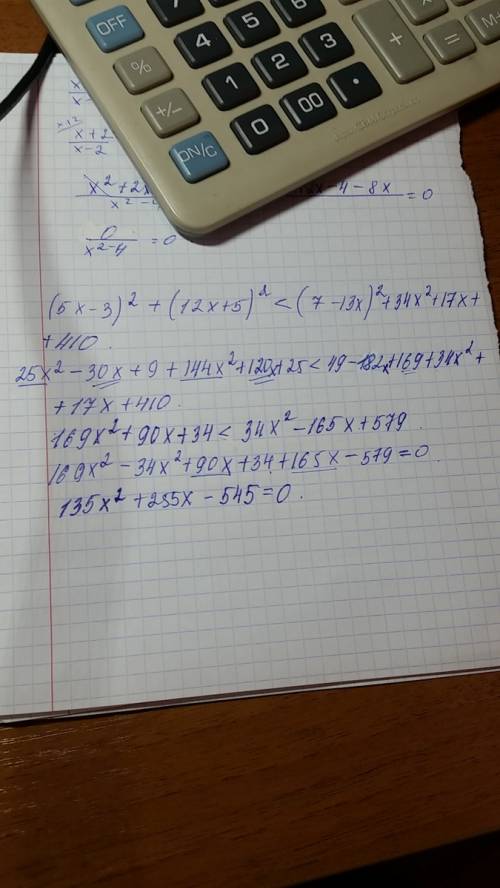 OFF
4
5
6
%
1
2
3
+
=
M-
+/-
0
00
.
ON/C
x+2
x-2
x² + 2x
-4 - 8x
= 0
x² - 4
0
x²-4
= 0
(5x-3)² + (12x+5)² < (7-13x)² + 34x² + 17x +
+ 410.
25x² - 30x + 9 + 144x² + 120x + 25 < 49 - 182x + 169 + 34x² +
+ 17x + 410.
169x² + 90x + 34 < 34x² - 165x + 579.
169x² - 34x² + 90x + 34 + 165x - 579 = 0.
135x² + 255x - 545 = 0.